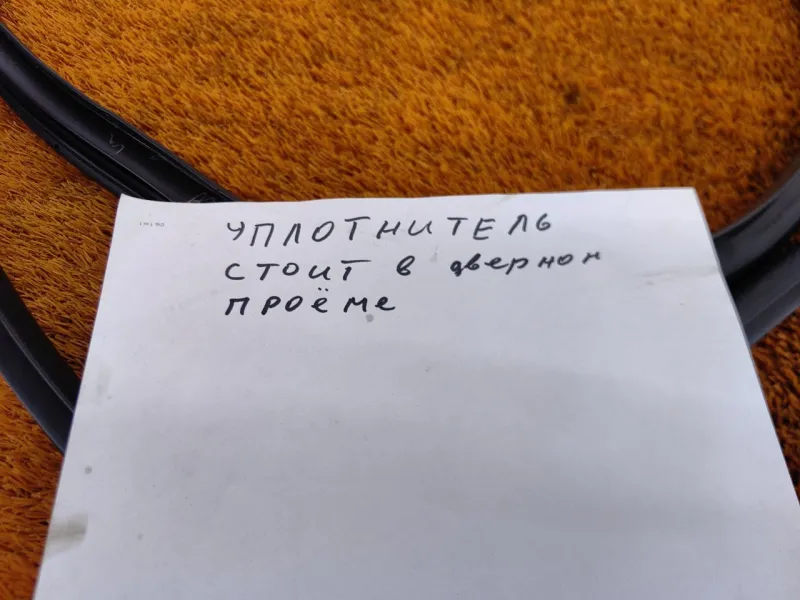 УПЛОТНИТЕЛЬ
СТОИТ В дверном
ПРОЁМЕ